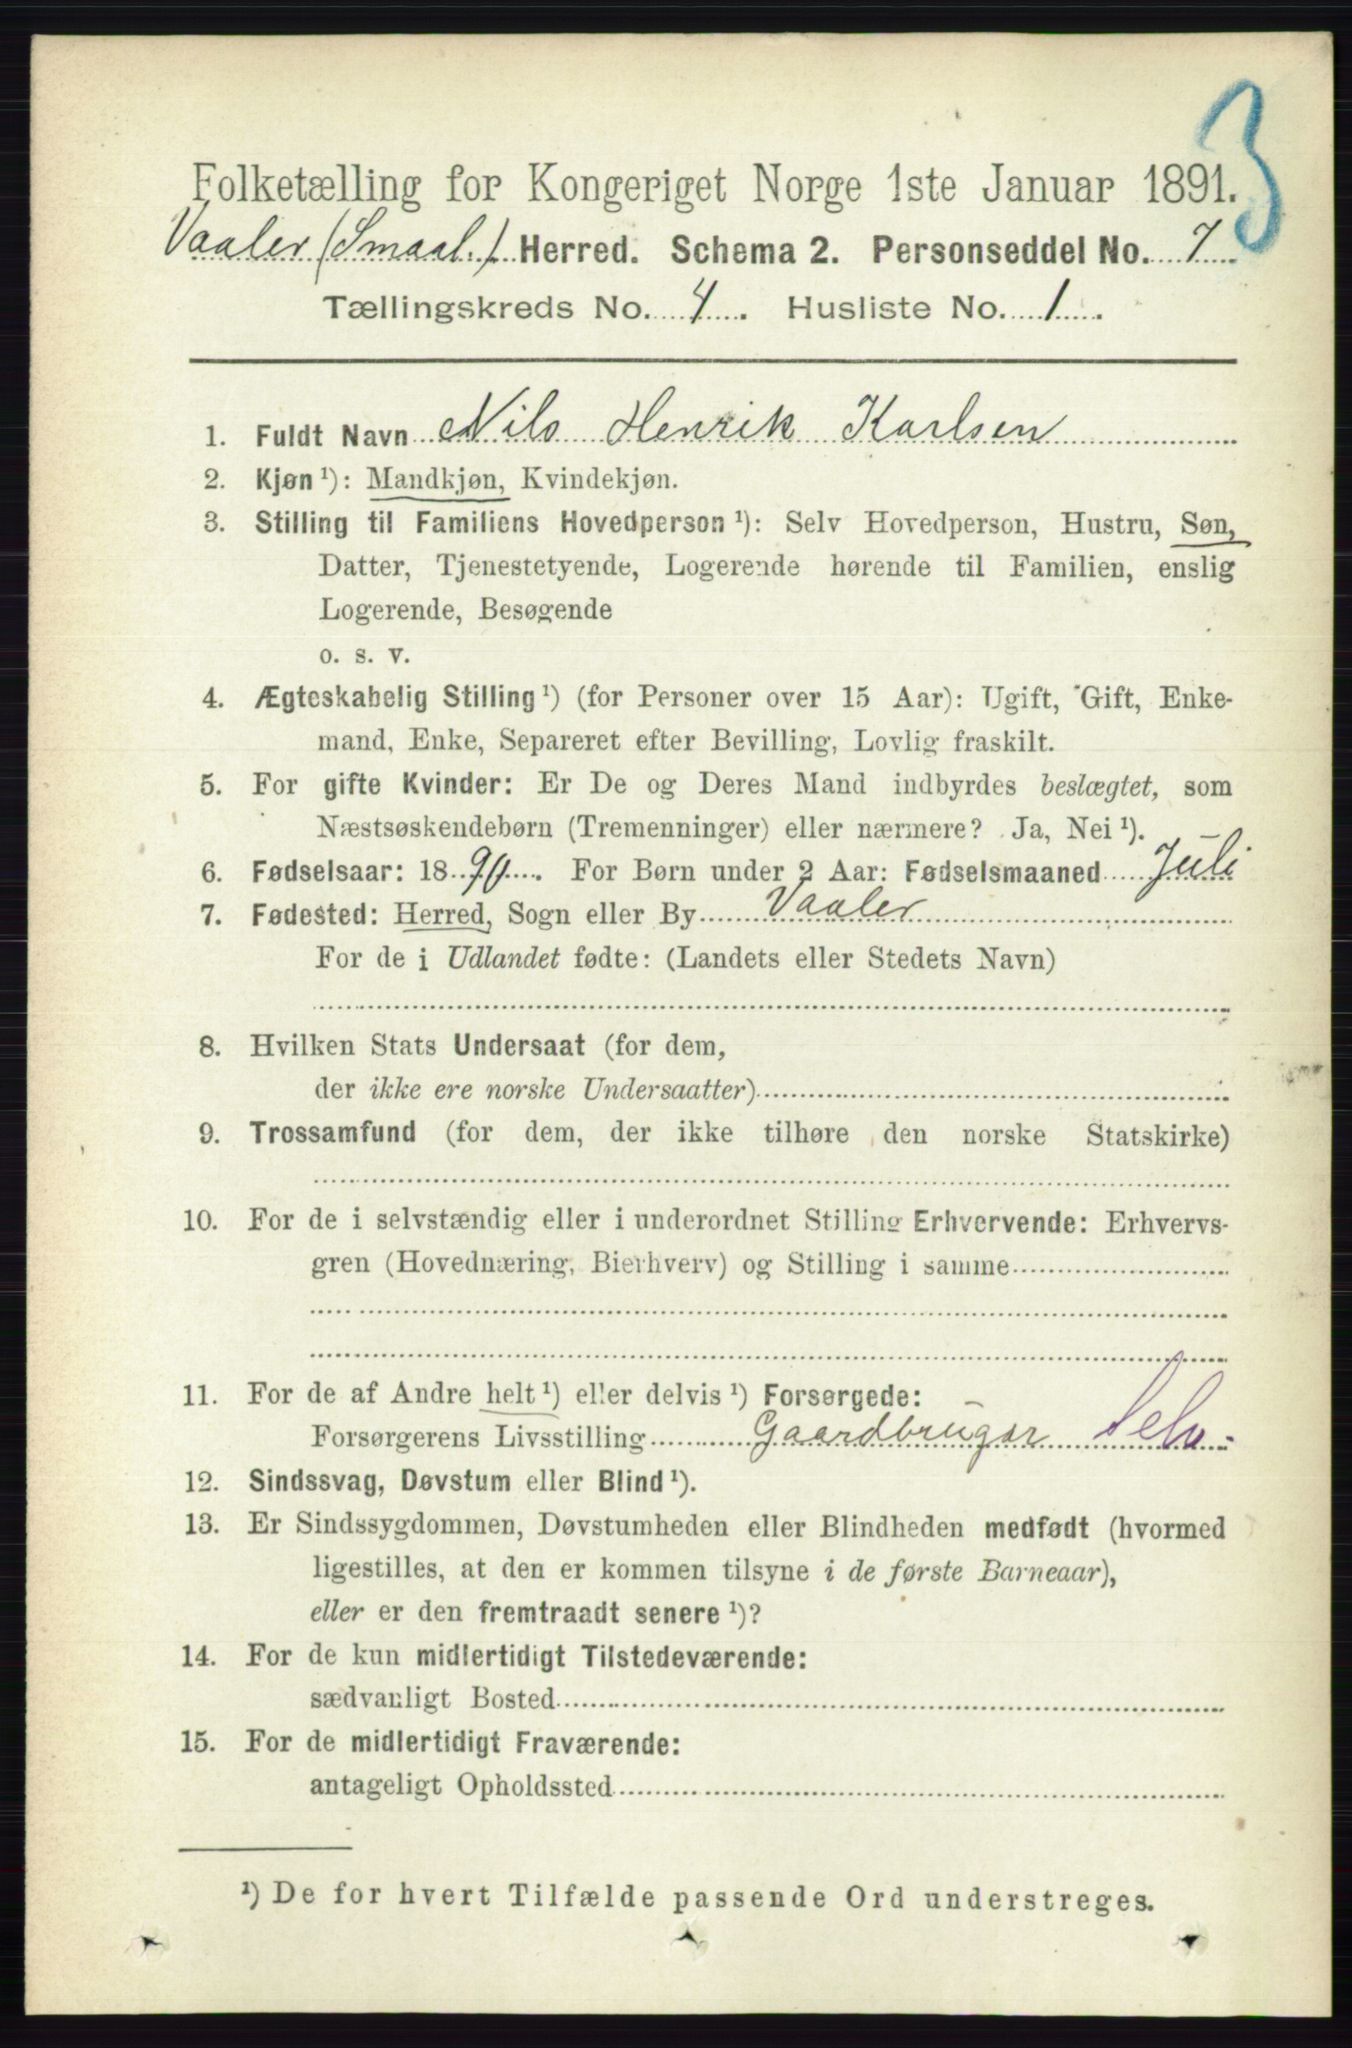 3
Folketælling for Kongeriget Norge 1ste Januar 1891.
Vaaler (Smaal.) Herred. Schema 2. Personseddel No. 7.
Tællingskreds No. 4. Husliste No. 1.
1. Fuldt Navn Nils Henrik Karlsen
2. Kjøn ¹): Mandkjøn, Kvindekjøn.
3. Stilling til Familiens Hovedperson ¹): Selv Hovedperson, Hustru, Søn,
Datter, Tjenestetyende, Logerende hørende til Familien, enslig
Logerende, Besøgende
o. s. v.
4. Ægteskabelig Stilling ¹) (for Personer over 15 Aar): Ugift, Gift, Enke-
mand, Enke, Separeret efter Bevilling, Lovlig fraskilt.
5. For gifte Kvinder: Er De og Deres Mand indbyrdes beslægtet, som
Næstsøskendebørn (Tremenninger) eller nærmere? Ja, Nei ¹).
6. Fødselsaar: 1890. For Børn under 2 Aar: Fødselsmaaned Juli
7. Fødested: Herred, Sogn eller By Vaaler
For de i Udlandet fødte: (Landets eller Stedets Navn)
8. Hvilken Stats Undersaat (for dem,
der ikke ere norske Undersaatter)
9. Trossamfund (for dem, der ikke tilhøre den norske Statskirke)
10. For de i selvstændig eller i underordnet Stilling Erhvervende: Erhvervs-
gren (Hovednæring, Bierhverv) og Stilling i samme
11. For de af Andre helt ¹) eller delvis ¹) Forsørgede:
Forsørgerens Livsstilling Gaardbruger Selv.
12. Sindssvag, Døvstum eller Blind ¹).
13. Er Sindssygdommen, Døvstumheden eller Blindheden medfødt (hvormed
ligestilles, at den er kommen tilsyne i de første Barneaar),
eller er den fremtraadt senere ¹)?
14. For de kun midlertidigt Tilstedeværende:
sædvanligt Bosted
15. For de midlertidigt Fraværende:
antageligt Opholdssted
¹) De for hvert Tilfælde passende Ord understreges.